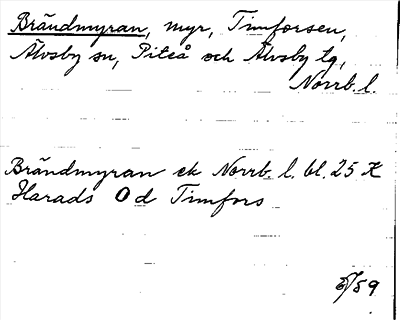 Brändmyran, myr, Timforsen,
Älvsby sn, Piteå och Älvsby tg,
Norrb. l.
Brändmyran ek Norrb. l. bl. 25 K
Harads Od Timfors
/59